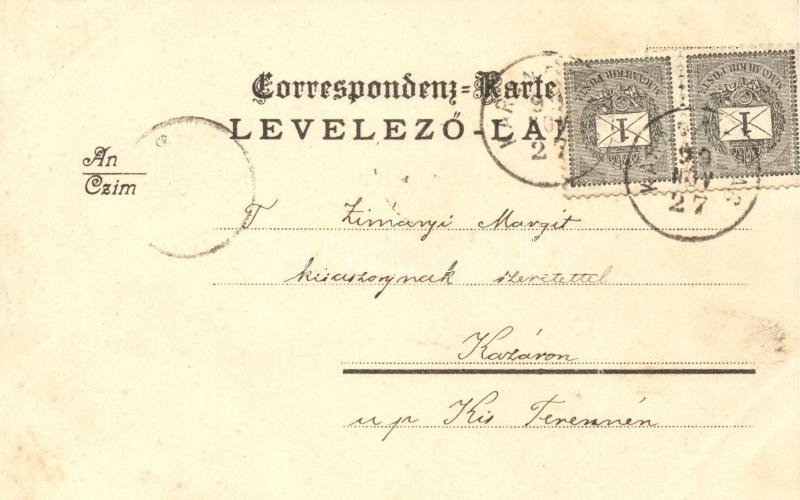 Correspondenz-Karte
LEVELEZŐ-LA
An
Czim
T. Zimányi Margit
kisasszonynak szeretettel
Kazáron
u p Kis Terennén
MAGYAR KIR. POSTA
1
MAGYAR KIR. POSTA
1
99
NOV
27
99
NOV
27